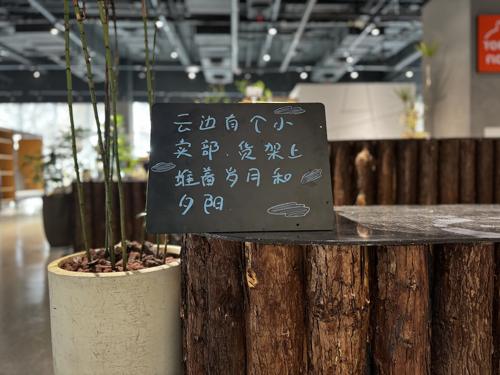 云边有个小
卖部,货架上
堆着岁月和
夕阳